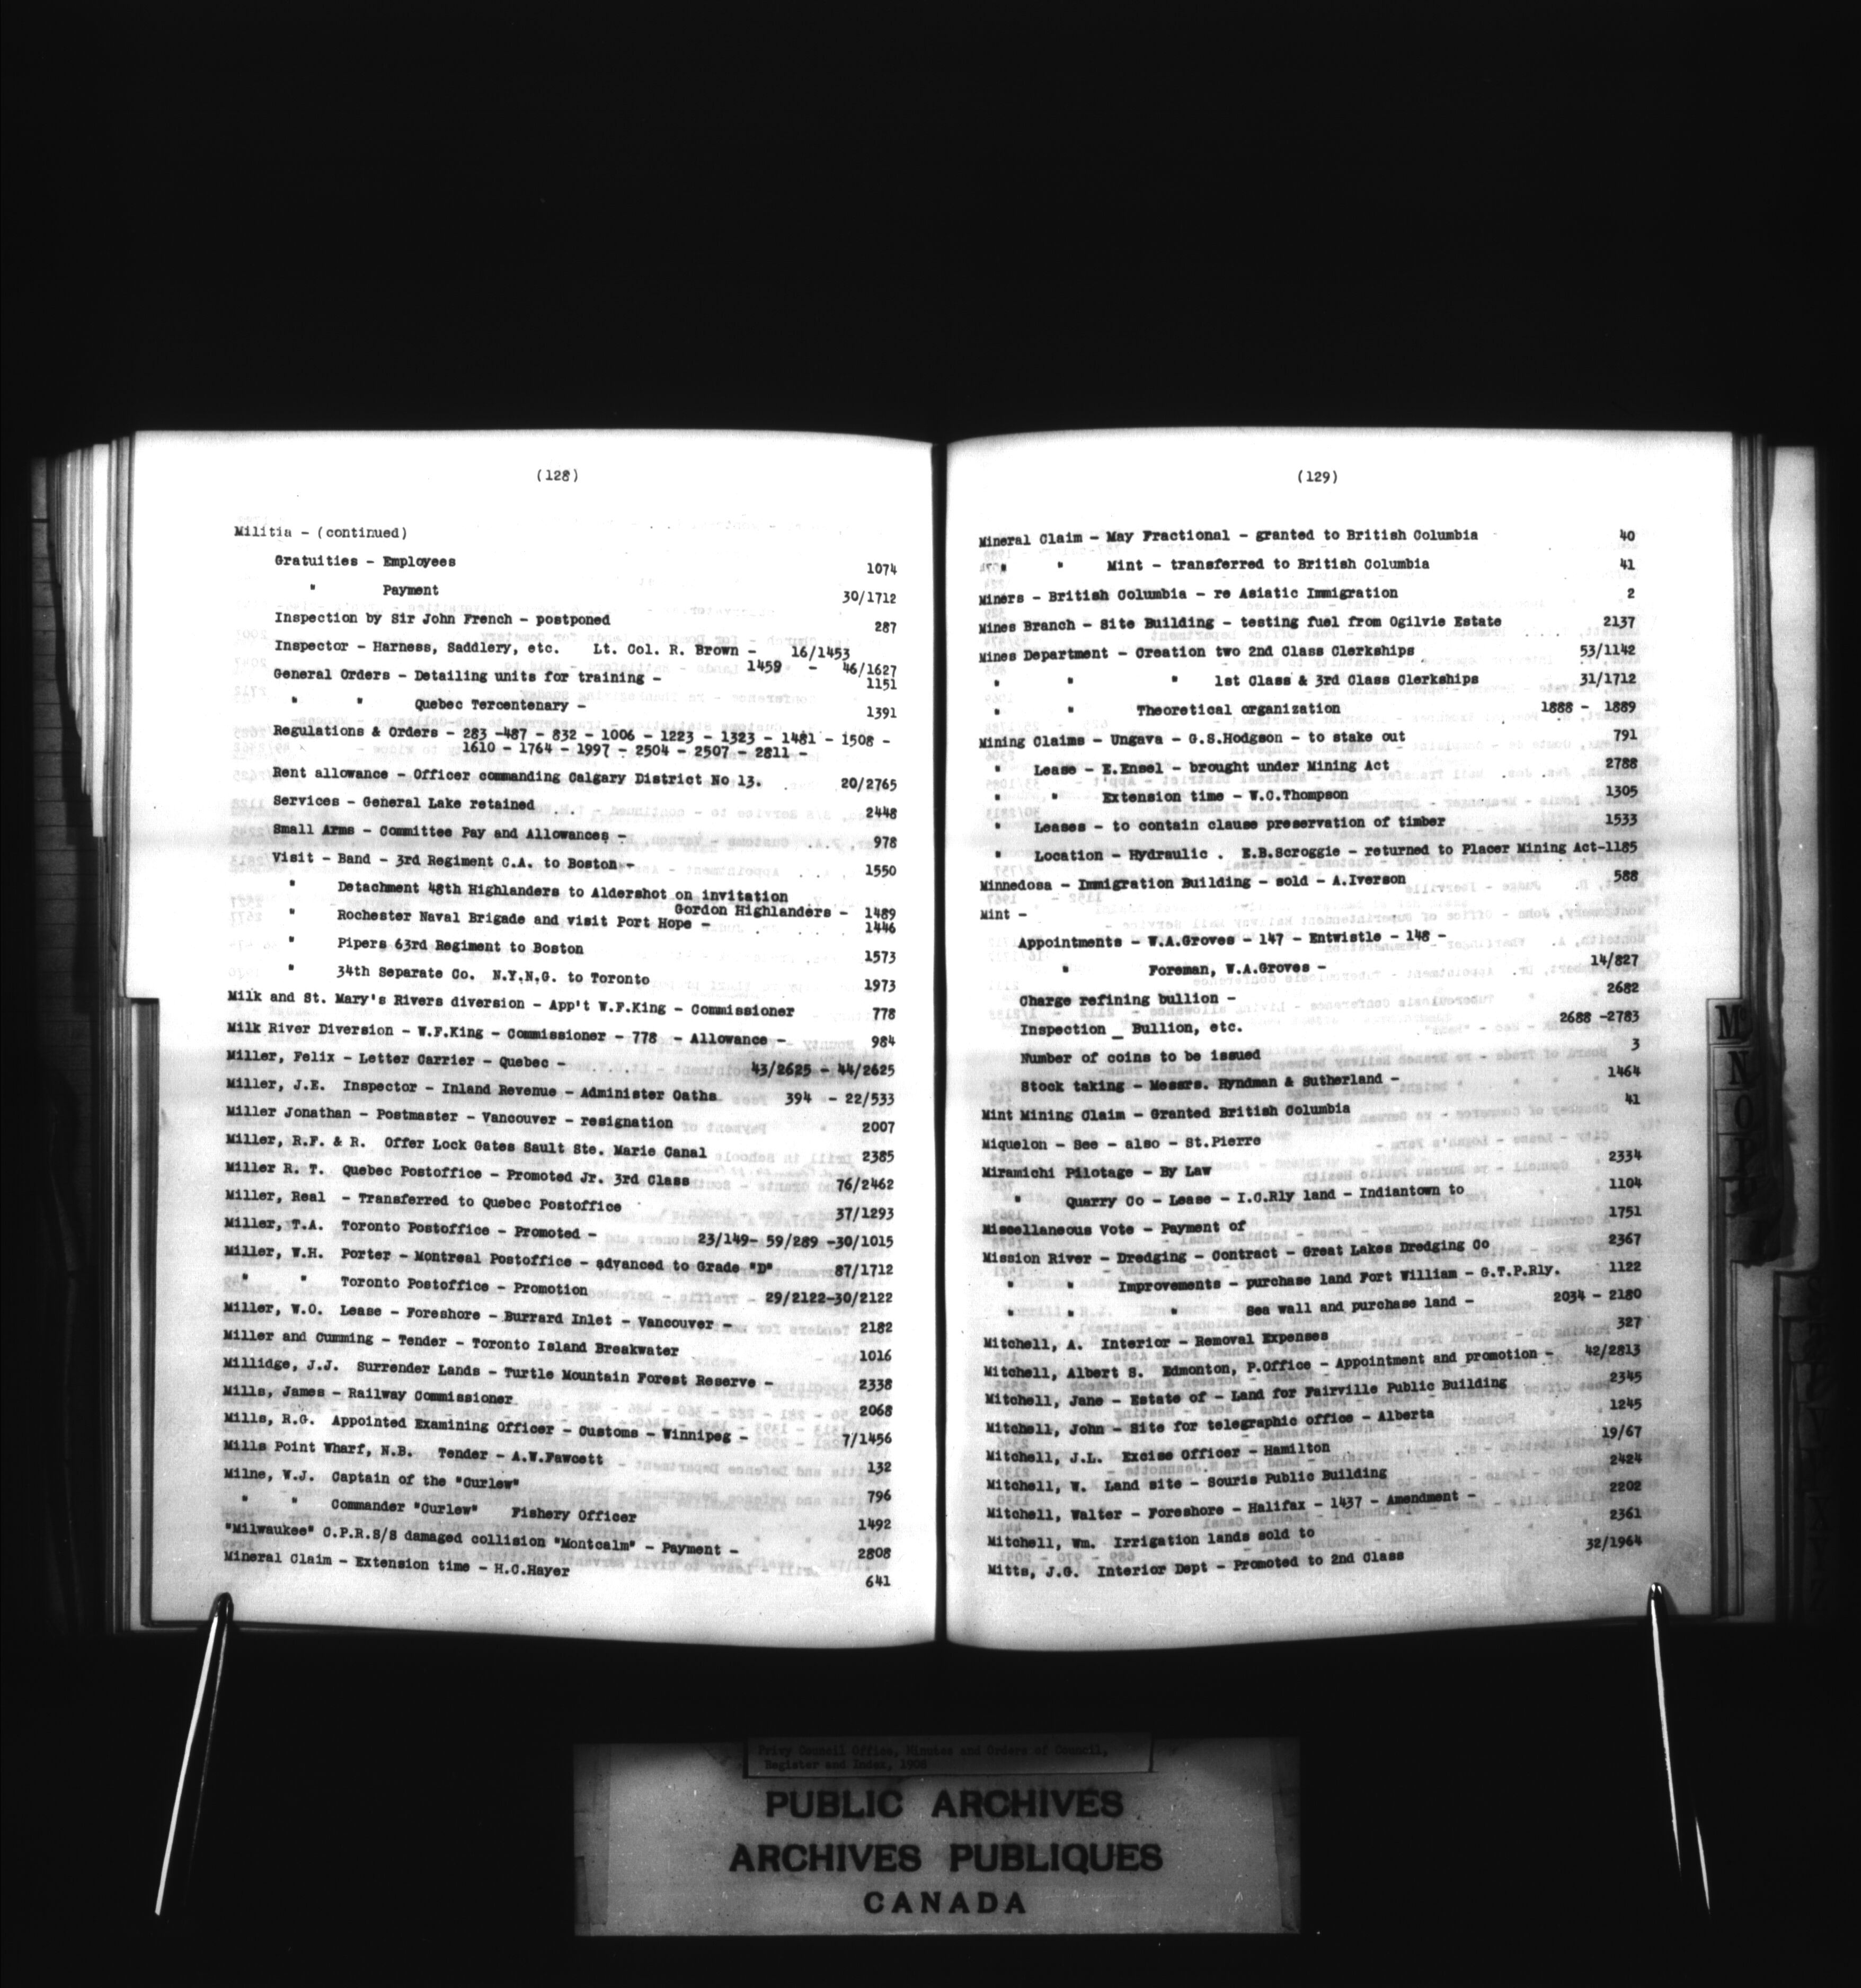 (128)
Militia - (continued)
Gratuities - Employees 1074
" Payment 30/1712
Inspection by Sir John French - postponed 287
Inspector - Harness, Saddlery, etc. Lt. Col. R. Brown - 16/1453
1459 - 46/1627
General Orders - Detailing units for training - 1151
" " Quebec Tercentenary - 1391
Regulations & Orders - 283 -487 - 832 - 1006 - 1223 - 1323 - 1481 - 1508 -
1610 - 1764 - 1997 - 2504 - 2507 - 2811 -
Rent allowance - Officer commanding Calgary District No 13. 20/2765
Services - General Lake retained 2448
Small Arms - Committee Pay and Allowances - 978
Visit - Band - 3rd Regiment C.A. to Boston - 1550
" Detachment 48th Highlanders to Aldershot on invitation
Gordon Highlanders - 1489
" Rochester Naval Brigade and visit Port Hope - 1446
" Pipers 63rd Regiment to Boston 1573
" 34th Separate Co. N.Y.N.G. to Toronto 1973
Milk and St. Mary's Rivers diversion - App't W.F.King - Commissioner 778
Milk River Diversion - W.F.King - Commissioner - 778 - Allowance - 984
Miller, Felix - Letter Carrier - Quebec - 43/2625 - 44/2625
Miller, J.E. Inspector - Inland Revenue - Administer Oaths 394 - 22/533
Miller Jonathan - Postmaster - Vancouver - resignation 2007
Miller, R.F. & R. Offer Lock Gates Sault Ste. Marie Canal 2385
Miller R. T. Quebec Postoffice - Promoted Jr. 3rd Class 76/2462
Miller, Real - Transferred to Quebec Postoffice 37/1293
Miller, T.A. Toronto Postoffice - Promoted - 23/149- 59/289 -30/1015
Miller, W.H. Porter - Montreal Postoffice - advanced to Grade "D" 87/1712
" " Toronto Postoffice - Promotion 29/2122-30/2122
Miller, W.O. Lease - Foreshore - Burrard Inlet - Vancouver - 2182
Miller and Cumming - Tender - Toronto Island Breakwater 1016
Millidge, J.J. Surrender Lands - Turtle Mountain Forest Reserve - 2338
Mills, James - Railway Commissioner 2068
Mills, R.G. Appointed Examining Officer - Customs - Winnipeg - 7/1456
Mills Point Wharf, N.B. Tender - A.W.Fawcett 132
Milne, W.J. Captain of the "Curlew" 796
" " Commander "Curlew" Fishery Officer 1492
"Milwaukee" C.P.R.S/S damaged collision "Montcalm" - Payment - 2808
Mineral Claim - Extension time - H.C.Hayer 641
(129)
Mineral Claim - May Fractional - granted to British Columbia 40
" " Mint - transferred to British Columbia 41
Miners - British Columbia - re Asiatic Immigration 2
Mines Branch - Site Building - testing fuel from Ogilvie Estate 2137
Mines Department - Creation two 2nd Class Clerkships 53/1142
" " " 1st Class & 3rd Class Clerkships 31/1712
" " Theoretical organization 1888 - 1889
Mining Claims - Ungava - G.S.Hodgson - to stake out 791
" Lease - E.Ensel - brought under Mining Act 2788
" " Extension time - W.C.Thompson 1305
" Leases - to contain clause preservation of timber 1533
" Location - Hydraulic . E.B.Scroggie - returned to Placer Mining Act-1185
Minnedosa - Immigration Building - sold - A.Iverson 588
Mint -
Appointments - W.A.Groves - 147 - Entwistle - 148 -
" Foreman, W.A.Groves - 14/827
Charge refining bullion - 2682
Inspection _ Bullion, etc. 2688 -2783
Number of coins to be issued 3
Stock taking - Messrs. Hyndman & Sutherland - 1464
Mint Mining Claim - Granted British Columbia 41
Miquelon - See - also - St.Pierre
Miramichi Pilotage - By Law 2334
" Quarry Co - Lease - I.C.Rly land - Indiantown to 1104
Miscellaneous Vote - Payment of 1751
Mission River - Dredging - Contract - Great Lakes Dredging Co 2367
" " Improvements - purchase land Fort William - G.T.P.Rly. 1122
" " " Sea wall and purchase land - 2034 - 2180
Mitchell, A. Interior - Removal Expenses 327
Mitchell, Albert S. Edmonton, P.Office - Appointment and promotion - 42/2813
Mitchell, Jane - Estate of - Land for Fairville Public Building 2345
Mitchell, John - Site for telegraphic office - Alberta 1245
Mitchell, J.L. Excise Officer - Hamilton 19/67
Mitchell, W. Land site - Souris Public Building 2424
Mitchell, Walter - Foreshore - Halifax - 1437 - Amendment - 2202
Mitchell, Wm. Irrigation lands sold to 2361
Mitts, J.G. Interior Dept - Promoted to 2nd Class 32/1964
Mc
N
O
P
Privy Council Office, Minutes and Orders of Council,
Register and Index, 1908
PUBLIC ARCHIVES
ARCHIVES PUBLIQUES
CANADA